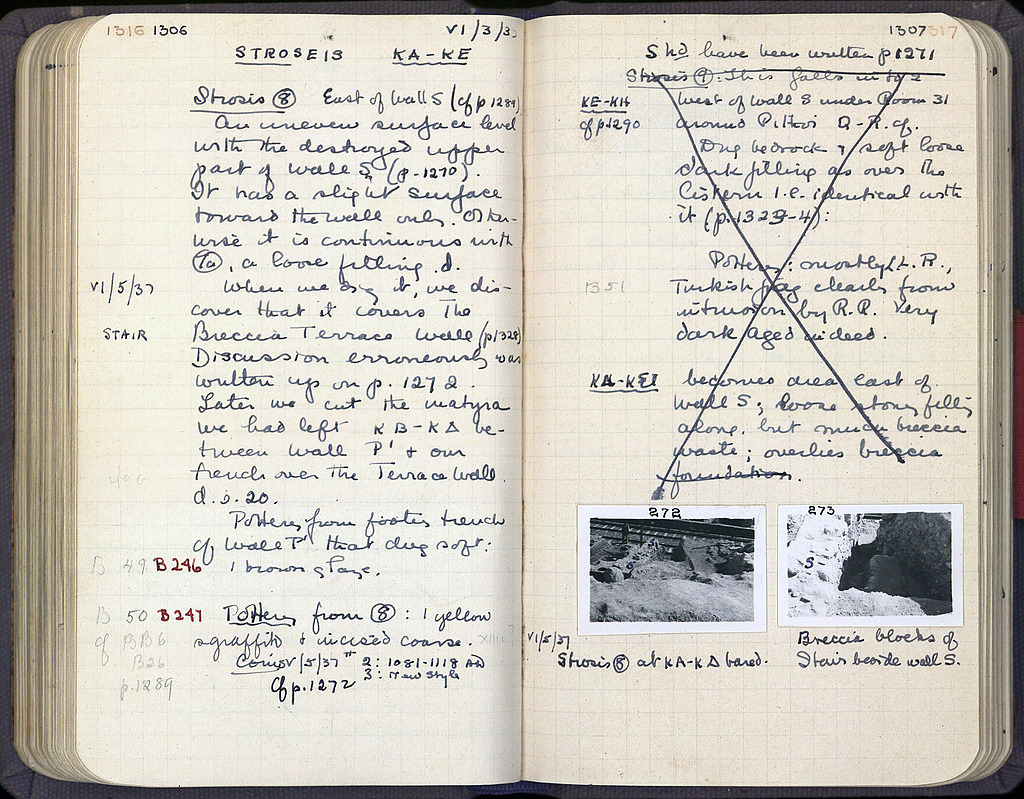 1316 1306
VI/3/3
STROSEIS KA-KE
Strosis ⑧ East of Wall S (cf p.1289)
An uneven surface level
with the destroyed upper
part of wall S (p-1270).
It has a slight surface
toward the wall only. Other-
wise it is continuous with
⑦a, a loose filling. d.
VI/5/37
When we dug it, we dis-
cover that it covers the
STAIR
Breccia Terrace Wall (p1328)
Discussion erroneously was
written up on p. 1272.
Later we cut the martyra
we had left KB-KΔ be-
tween Wall P' + our
trench over the Terrace Wall.
d. 20.
Pottery from footing trench
of Wall P' that dug soft:
B 49 B246
1 brown glaze.
B 50 B247 Pottery from ⑧: 1 yellow
cf BB6 sgraffito + incised coarse.
B26
Coins VI/5/37 # 2: 1081-1118 AD
3: New Style
p.1289
Cf p.1272
1307 317
Shd have been written p1271
Strosis ⑨: This falls into 2
KE-KH West of Wall S under Room 31
cf p1290 around Pithoi Q-R. cf.
Dug bedrock + soft loose
dark filling as over the
Cistern i.e. identical with
it (p.1323-4):
B51
Pottery: mostly L.R.,
Turkish frag clearly from
intrusion by R.R. Very
dark Aged indeed.
KA-KE becomes area East of
Wall S; loose stoney filling
along, but much breccia
waste; overlies breccia
foundation.
272
273
S
VI/5/37
Strosis ⑧ at KA-KΔ bared.
Breccia blocks of
Stair beside wall S.